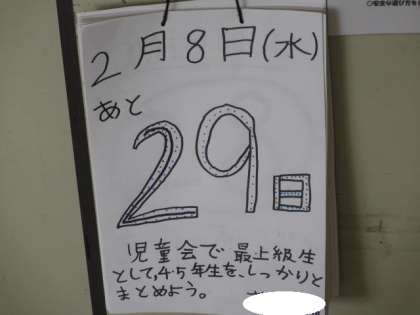 2月8日(水)
あと
29日
児童会で最上級生
として,4·5年生を、しっかりと
まとめよう。